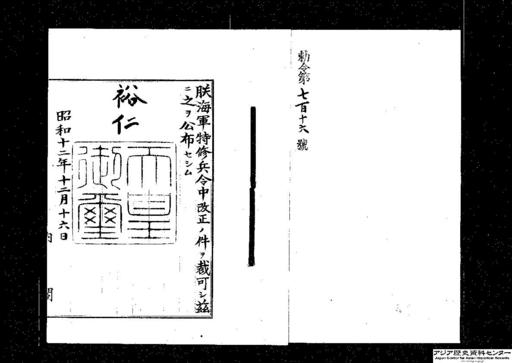 勅令第七百十六號
朕海軍特修兵令中改正ノ件ヲ裁可シ茲
ニ之ヲ公布セシム
裕仁
天皇御璽
昭和十二年十二月十六日
内閣
アジア歴史資料センター
Japan Center for Asian Historical Records